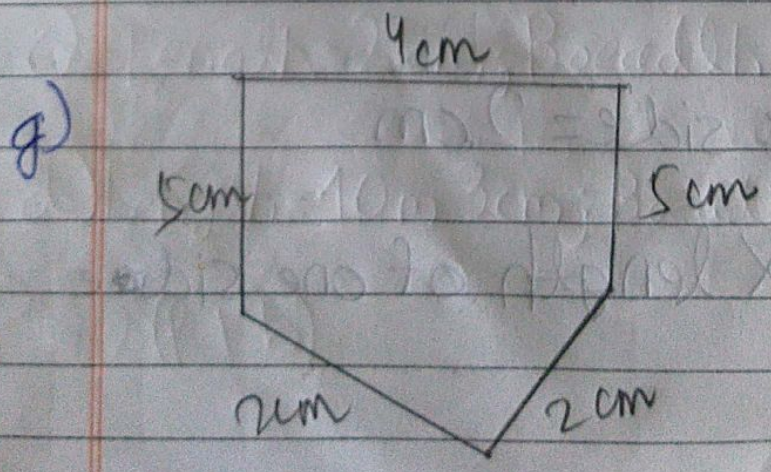 4cm
g)
5cm
5cm
2cm
2cm